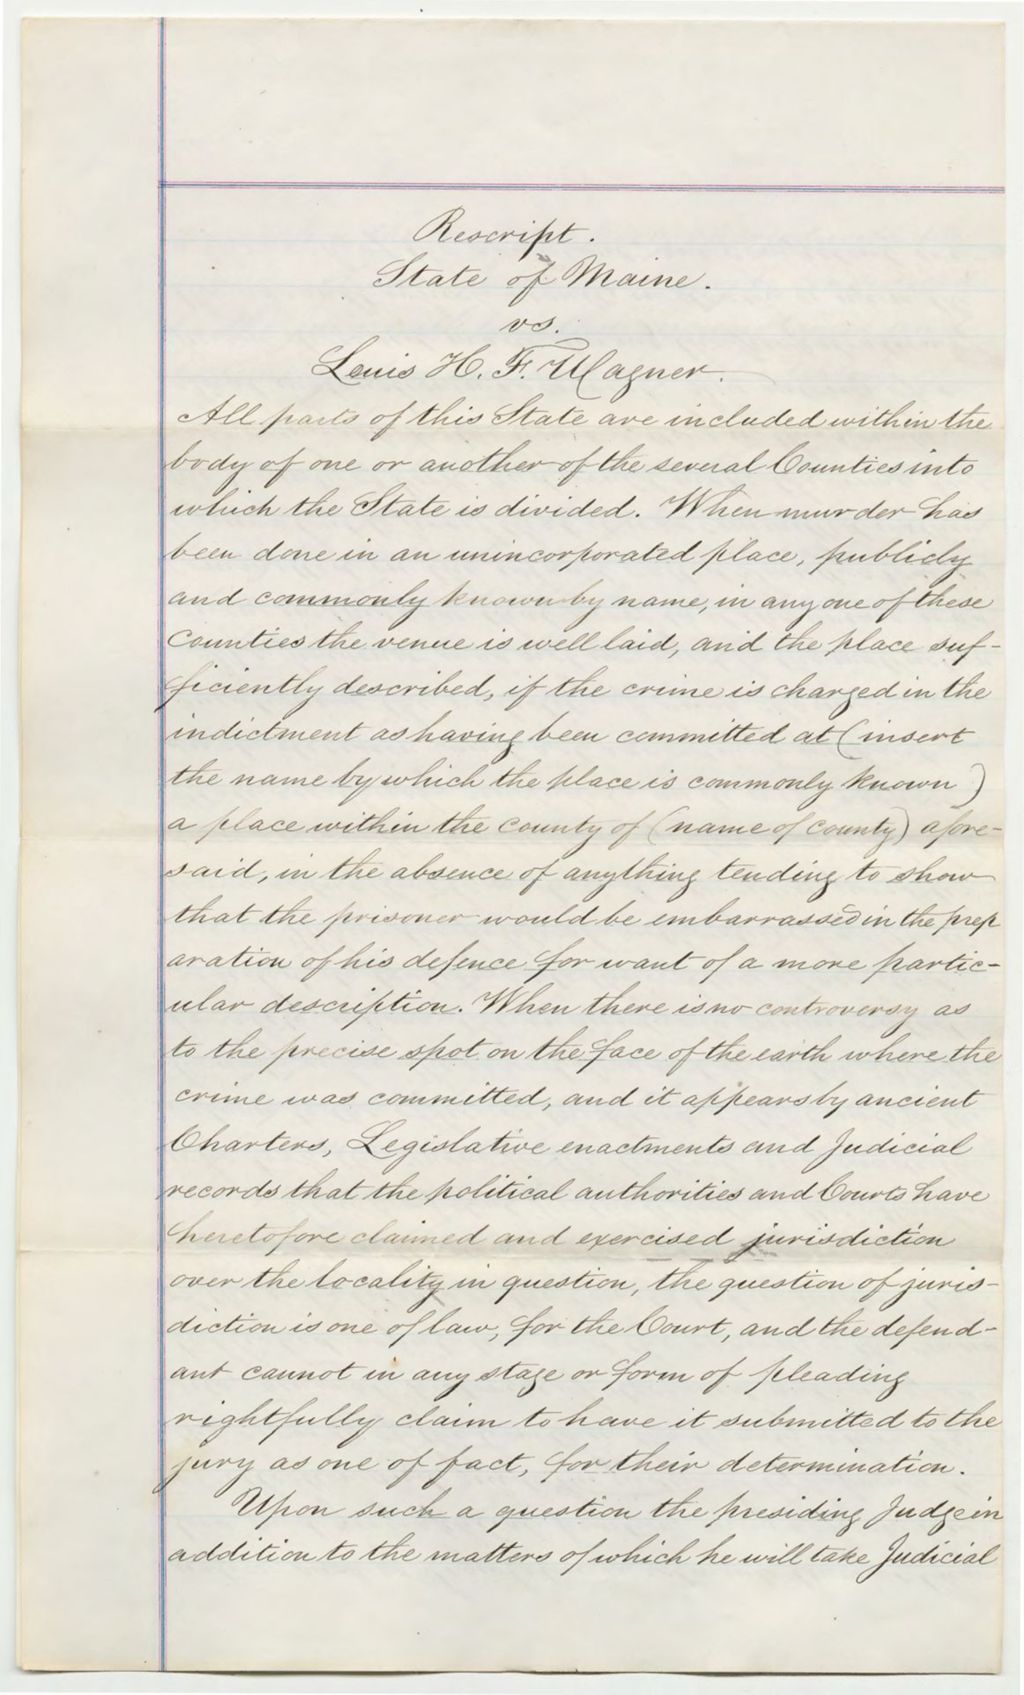 Rescript.
State of Maine.
vs.
Louis H. F. Wagner.
All parts of this State are included within the
body of one or another of the several Counties into
which the State is divided. When murder has
been done in an unincorporated place, publicly
and commonly known by name, in any one of these
Counties the venue is well laid, and the place suf-
ficiently described, if the crime is charged in the
indictment as having been committed at (insert
the name by which the place is commonly known)
a place within the county of (name of county) afore-
said, in the absence of anything tending to show
that the prisoner would be embarrassed in the prep
aration of his defence for want of a more partic-
ular description. When there is no controversy as
to the precise spot on the face of the earth where the
crime was committed, and it appears by ancient
Charters, Legislative enactments and Judicial
records that the political authorities and Courts have
heretofore claimed and exercised jurisdiction
over the locality in question, the question of juris-
diction is one of law, for the Court, and the defend-
ant cannot in any stage or form of pleading
rightfully claim to have it submitted to the
jury as one of fact, for their determination.
Upon such a question the presiding Judge in
addition to the matters of which he will take Judicial